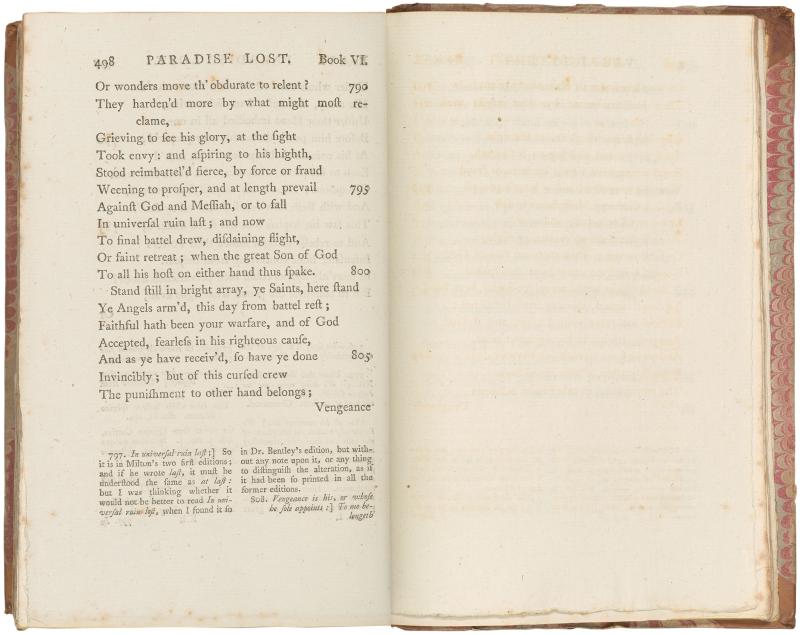 498 PARADISE LOST. Book VI.
Or wonders move th' obdurate to relent? 790
They harden'd more by what might moſt re-
clame,
Grieving to ſee his glory, at the ſight
Took envy: and aſpiring to his highth,
Stood reimbattel'd fierce, by force or fraud
Weening to proſper, and at length prevail 795
Againſt God and Meſſiah, or to fall
In univerſal ruin laſt; and now
To final battel drew, diſdaining flight,
Or faint retreat; when the great Son of God
To all his hoſt on either hand thus ſpake. 800
Stand ſtill in bright array, ye Saints, here ſtand
Ye Angels arm'd, this day from battel reſt;
Faithful hath been your warfare, and of God
Accepted, fearleſs in his righteous cauſe,
And as ye have receiv'd, ſo have ye done 805
Invincibly; but of this curſed crew
The puniſhment to other hand belongs;
Vengeance
797. In univerſal ruin laſt;] So
it is in Milton's two firſt editions;
and if he wrote laſt, it muſt be
underſtood the ſame as at laſt:
but I was thinking whether it
would not be better to read In uni-
verſal ruin loſt, when I found it ſo
in Dr. Bentley's edition, but with-
out any note upon it, or any thing
to diſtinguiſh the alteration, as if
it had been ſo printed in all the
former editions.
808. Vengeance is his, or whoſe
he ſole appoints:] To me be-
longeth